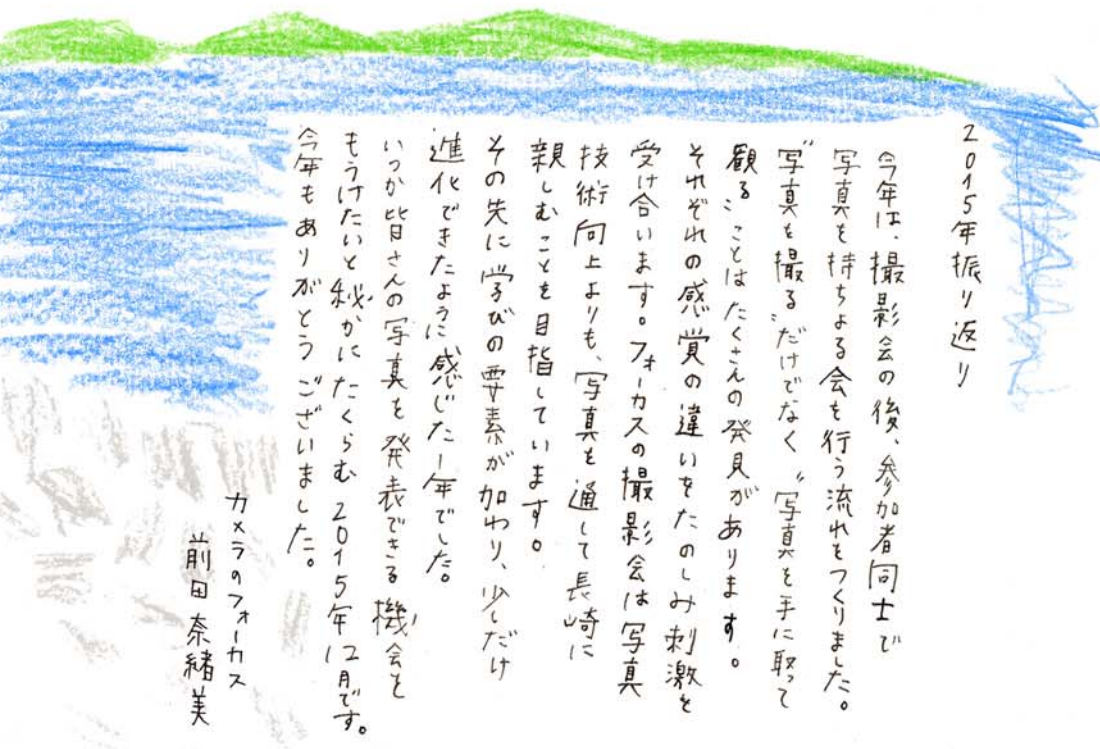 2015年振り返り
今年は、撮影会の後、参加者同士で
写真を持ちよる会を行う流れをつくりました。
〝写真を撮る〟だけでなく〝写真を手に取って
観る〟ことはたくさんの発見があります。
それぞれの感覚の違いをたのしみ刺激を
受け合います。フォーカスの撮影会は写真
技術向上よりも、写真を通して長崎に
親しむことを目指しています。
その先に学びの要素が加わり、少しだけ
進化できたように感じた1年でした。
いつか皆さんの写真を発表できる機会を
もうけたいと秘かにたくらむ2015年12月です。
今年もありがとうございました。
カメラのフォーカス
前田奈緒美